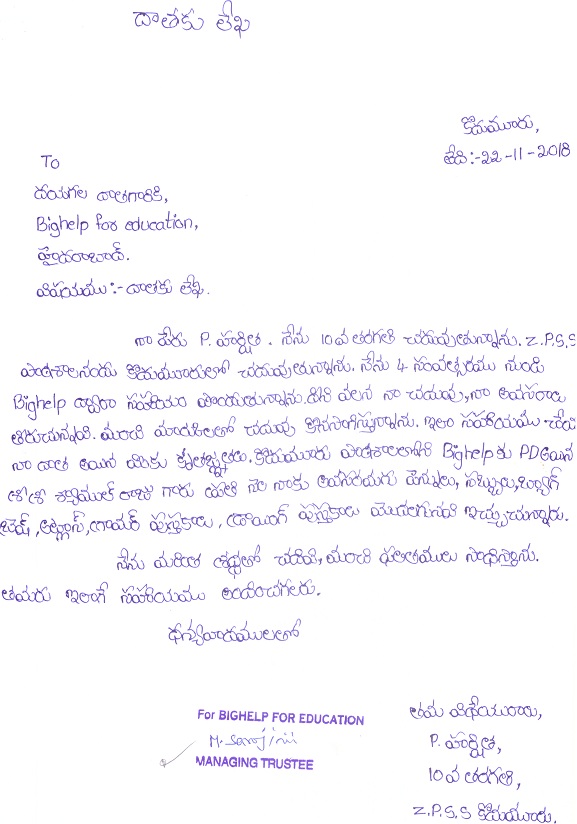 దాతకు లేఖ
కొదుమూరు,
తేది:-22-11-2018
To
దయగల దాతగారికి,
Bighelp for education,
హైదరాబాద్.
విషయము:- దాతకు లేఖ.
నా పేరు P. హర్షిత. నేను 10వ తరగతి చదువుతున్నాను. Z.P.S.S
పాఠశాలనందు కొదుమూరులో చదువుతున్నాను. నేను 4 సంవత్సరము నుండి
Bighelp ద్వారా సహాయం పొందుతున్నాను. దీని వలన నా చదువు, నా అవసరాలు
తీరుచున్నవి. మంచి మార్కులతో చదువు కొనసాగిస్తున్నాను. ఇలా సహాయము చేసే
నా దాత అయిన మీకు కృతజ్ఞతలు. కొదుమూరు పాఠశాలలోని Bighelp కు PD అయిన
శ్రీ శ్రీ రాజు గారు ప్రతి నెల నాకు అవసరమగు పెన్నులు, సబ్బులు, బ్యాగ్
బ్రష్, అట్లాస్, గ్రామర్ పుస్తకాలు, డ్రాయింగ్ పుస్తకాలు మొదలగునవి ఇచ్చుచున్నారు.
నేను మరింత శ్రద్ధతో చదివి, మంచి ఫలితములు సాధిస్తాను.
తమరు ఇలాగే సహాయము అందించగలరు.
ధన్యవాదములతో
For BIGHELP FOR EDUCATION
M. Sarojini
MANAGING TRUSTEE
తమ విధేయురాలు,
P. హర్షిత,
10వ తరగతి,
Z.P.S.S కొదుమూరు.